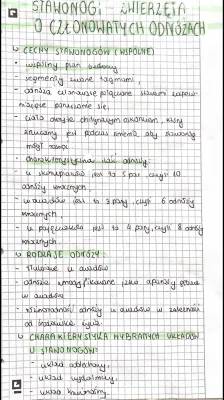 STAWONOGI - ZWIERZĘTA
O CZŁONOWATYCH ODNÓŻACH
CECHY STAWONOGÓW (WSPÓLNE)
• wspólny plan budowy
• segmenty zwane tagmami
• odnóża członowane połączone stawami
poruszanie się
• ciało okryte chitynowym oskórkiem, który
zrzucany jest podczas linienia, aby stawonóg
mógł rosnąć
• charakterystyczna ilość odnóży:
• u skorupiaków jest to 5 par, czyli 10
odnóży krocznych,
• u owadów jest to 3 pary, czyli 6 odnóży
krocznych,
• u pajęczaków jest to 4 pary, czyli 8 odnóży
krocznych
RODZAJE ODNÓŻY:
• u owadów
• odnóża zmodyfikowane jako aparaty gębowe
u owadów
• różnorodność odnóży u owadów w zależności
od środowiska życia.
CHARAKTERYSTYKA WYBRANYCH UKŁADÓW
U STAWONOGÓW:
• układ oddechowy,
• układ wydalniczy,
• układ krwionośny,